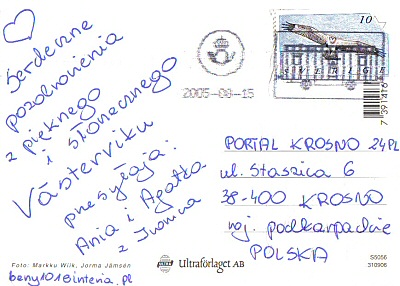 Serdeczne
pozdrowienia
z pięknego
i słonecznego
Västerviku
przesyłają:
Ania i Agatka
z Iwonicza
10
SVERIGE
2005-08-15
7 391116
PORTAL KROSNO 24PL
ul. Staszica 6
38-400 KROSNO
woj. podkarpackie
POLSKA
Foto: Markku Wilk, Jorma Jämsén
Ultraförlaget AB
S5056
310906
beny101@interia.pl